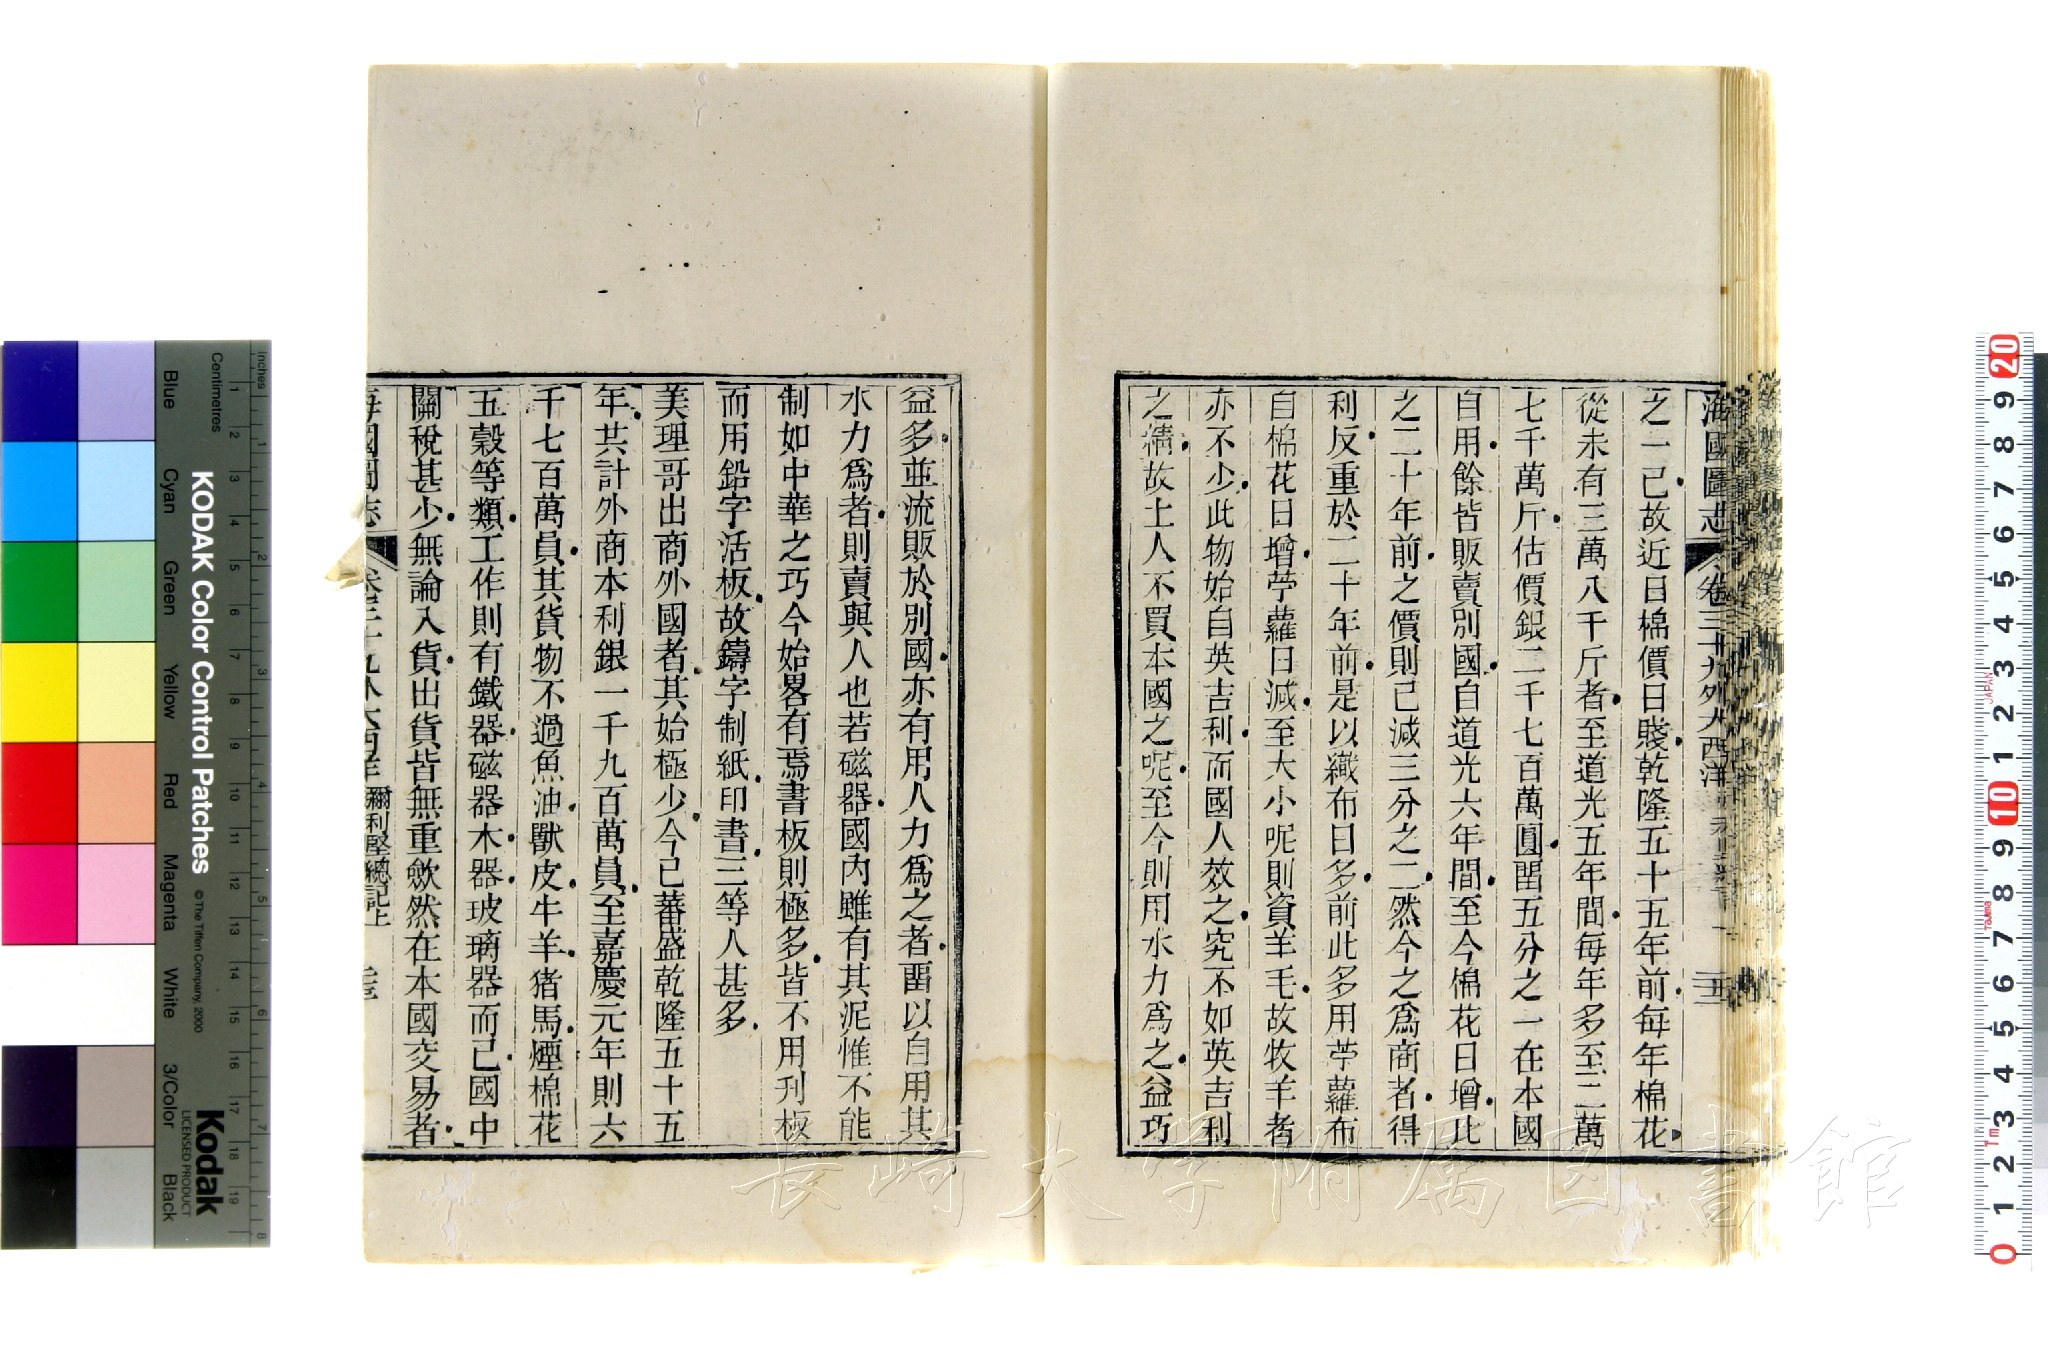 海國圖志 卷三十九外大西洋
之一已故近日棉價日賤乾隆五十五年前每年棉花
從未有三萬八千斤者至道光五年間每年多至二萬
七千萬斤估價銀二千七百萬圓畱五分之一在本國
自用餘皆販賣別國自道光六年間至今棉花日增比
之二十年前之價則已減三分之二然今之爲商者得
利反重於二十年前是以織布日多前此多用苧蘿布
自棉花日增苧蘿日減至大小呢則資羊毛故牧羊者
亦不少此物始自英吉利而國人效之究不如英吉利
之精故土人不買本國之呢至今則用水力爲之益巧
益多並流販於別國亦有用人力爲之者畱以自用其
水力爲者則賣與人也若磁器國內雖有其泥惟不能
制如中華之巧今始畧有焉書板則極多皆不用刋板
而用鉛字活板故鑄字制紙印書三等人甚多
美理哥出商外國者其始極少今已蕃盛乾隆五十五
年共計外商本利銀一千九百萬員至嘉慶元年則六
千七百萬員其貨物不過魚油獸皮牛羊猪馬煙棉花
五穀等類工作則有鐵器磁器木器玻璃器而已國中
關稅甚少無論入貨出貨皆無重斂然在本國交易者
海國圖志 卷三十九外大西洋 彌利堅總記上
KODAK Color Control Patches
© The Tiffen Company, 2000
Kodak
LICENSED PRODUCT
Inches
Centimetres
Blue Cyan Green Yellow Red Magenta White 3/Color Black
長崎大学附属図書館